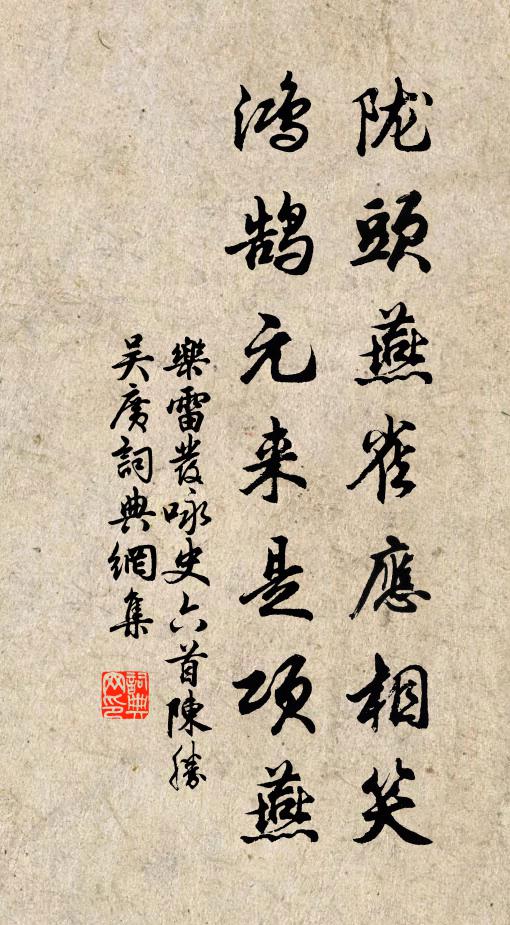 陇頭燕雀應相笑
鴻鹄元来是項燕
樂雷發咏史六首陳勝
吴廣詞典網集
詞典
网印